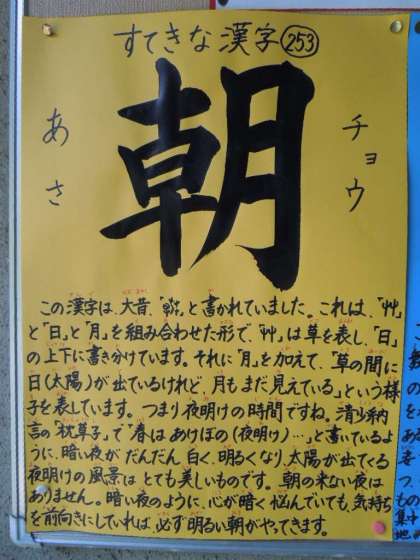 すてきな漢字 253
朝
あさ
チョウ
この漢字は、大昔、「」と書かれていました。これは、「艸」
と「日」と「月」を組み合わせた形で、「艸」は草を表し、「日」
の上下に書き分けています。それに「月」を加えて、「草の間に
日(太陽)が出ているけれど、月もまだ見えている」という様
子を表しています。つまり夜明けの時間ですね。清少納
言の「枕草子」で“春はあけぼの(夜明け)…”と書いているよ
うに、暗い夜がだんだん白く、明るくなり、太陽が出てくる
夜明けの風景はとても美しいものです。朝の来ない夜は
ありません。暗い夜のように、心が暗く悩んでいても、気持ち
を前向きにしていれば必ず明るい朝がやってきます。